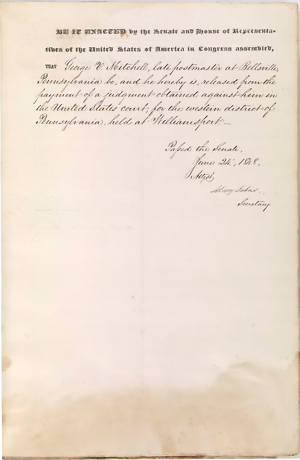 BE IT ENACTED by the Senate and House of Representa-
tives of the United States of America in Congress assembled,
THAT George V. Mitchell, late postmaster at Bellville,
Pennsylvania be, and he hereby is, released from the
payment of a judgment obtained against him in
the United States court, for the western district of
Pennsylvania, held at Williamsport—
Passed the Senate,
June 24, 18
Attest,
Secretary